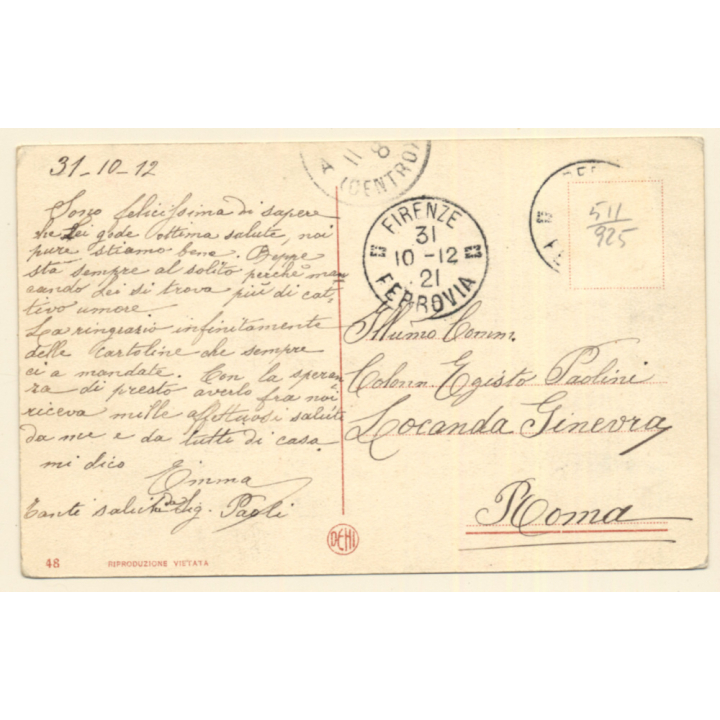 31-10-12
Sono felicissima di sapere
che Lei gode ottima salute, noi
pure stiamo bene. Beppe
sta sempre al solito perchè man
cando Lei si trova più di cat,
tivo umore.
La ringrazio infinitamente
delle cartoline che sempre
ci a mandate. Con la speran
za di presto averlo fra noi
riceva mille affettuosi salute
da me e da tutti di casa
mi dico
Emma
Tanti saluti Sig. Paoli
48
RIPRODUZIONE VIETATA
DEHI
A
11 8
(CENTRO)
FIRENZE
31
10-12
21
FERROVIA
511
925
Illumo Comm.
Colonn Egisto Paolini
Locanda Ginevra
Roma